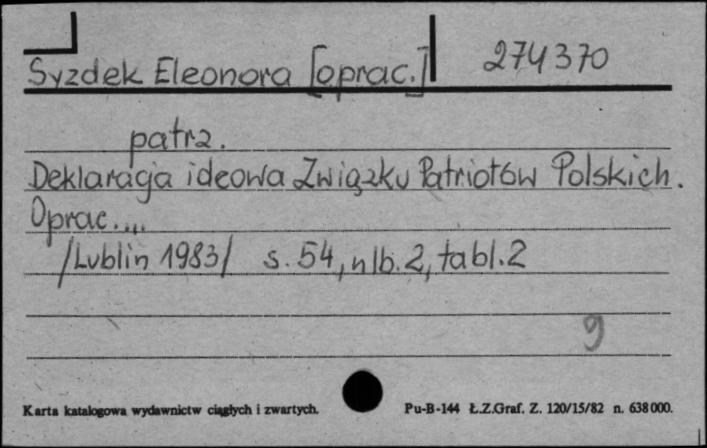 Syzdek Eleonora [oprac.] 274370
patrz.
Deklaracja ideowa Związku Patriotów Polskich.
Oprac....
/Lublin 1983/ s. 54, nlb. 2, tabl. 2
9
Karta katalogowa wydawnictw ciągłych i zwartych. Pu-B-144 Ł.Z.Graf. Z. 120/15/82 n. 638000.